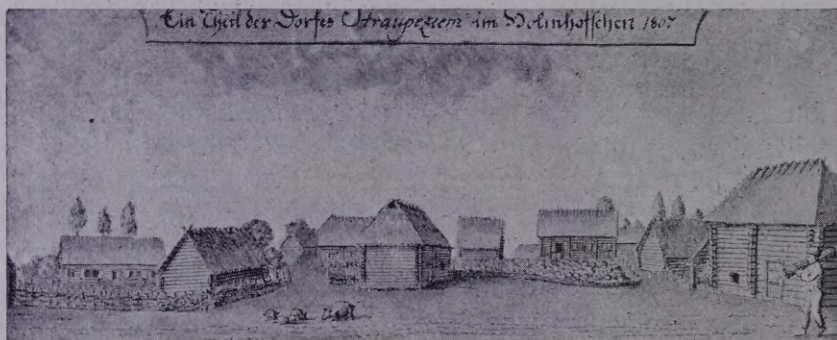 Ein Theil der Dorfes Straupeziem im Holmhofschen 1807